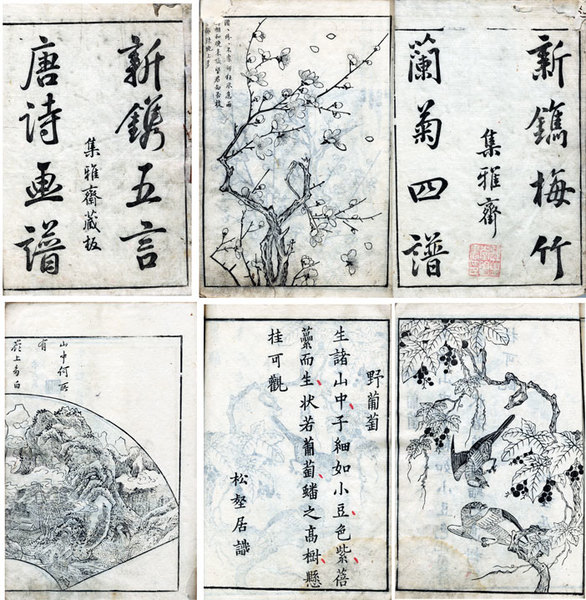 新鐫五言
集雅齋藏板
唐詩画譜
新鐫梅竹
集雅齋
蘭菊四譜
山中何所
有
嶺上多白
野葡萄
生諸山中子細如小豆色紫蓓
蘽而生状若葡萄蟠之高樹懸
挂可觀
松壑居識